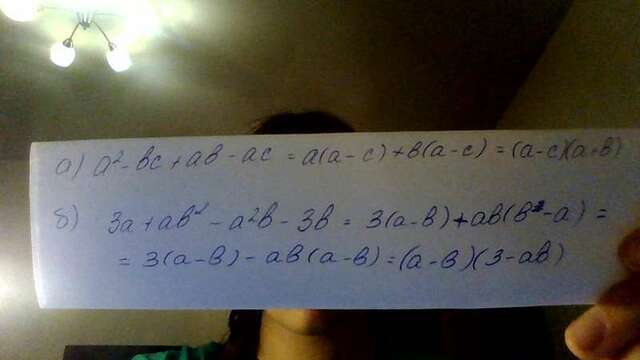 а) a² - bc + ab - ac = a(a-c) + b(a-c) = (a-c)(a+b)
б) 3a + ab² - a²b - 3b = 3(a-b) + ab(b-a) =
= 3(a-b) - ab(a-b) = (a-b)(3-ab)